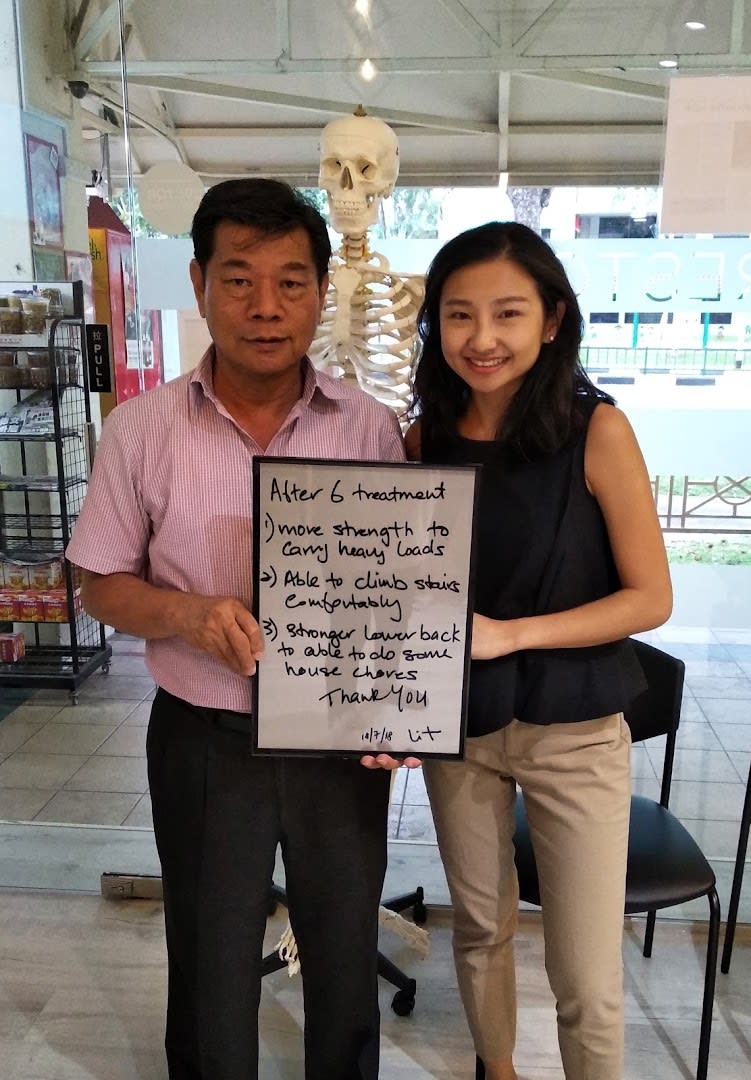 拉
PULL
After 6 treatment
1) more strength to
carry heavy loads
2) Able to climb stairs
comfortably
3) stronger lower back
to able to do some
house chores
Thank You
10/7/18